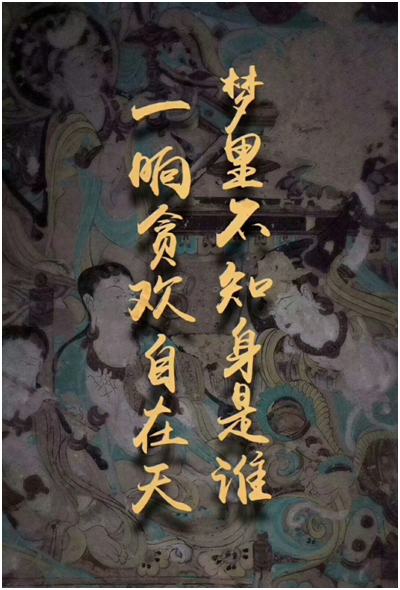 梦里不知身是谁
一晌贪欢自在天